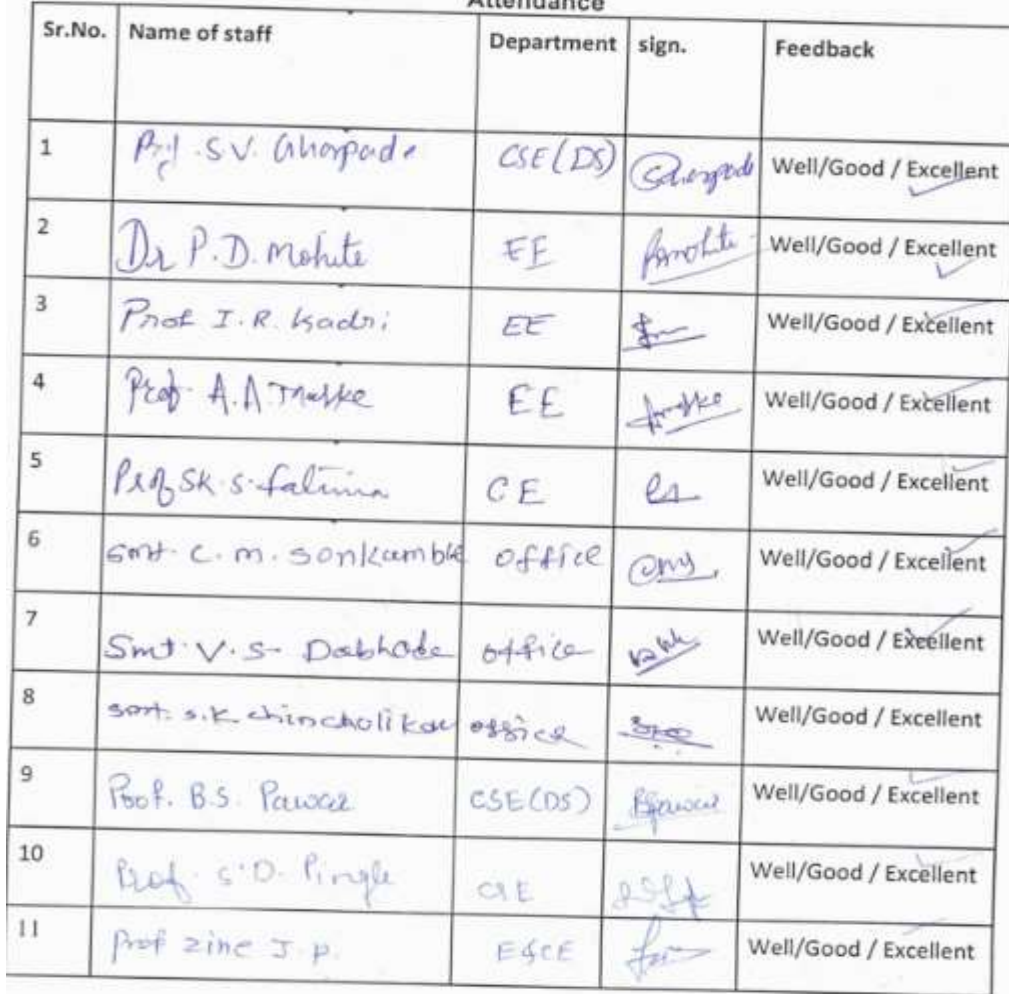 Attendance
Sr.No. Name of staff Department sign. Feedback
1 Prof. S.V. Ghorpade CSE(DS) Ghorpade Well/Good / Excellent
2 Dr P.D. Mohite EE Pmohite Well/Good / Excellent
3 Prof I.R. Kadri EE Well/Good / Excellent
4 Prof. A.A. Maske EE Well/Good / Excellent
5 Prof Sk. S. Fatima CE Well/Good / Excellent
6 Smt. C. M. Sonkamble office Well/Good / Excellent
7 Smt. V. S. Dabhade office Well/Good / Excellent
8 Smt. S.K. Chincholikar office Well/Good / Excellent
9 Prof. B.S. Pawar CSE(DS) Bpawar Well/Good / Excellent
10 Prof. S.D. Pingle CSE Well/Good / Excellent
11 Prof Zine J.P. E&CE Well/Good / Excellent